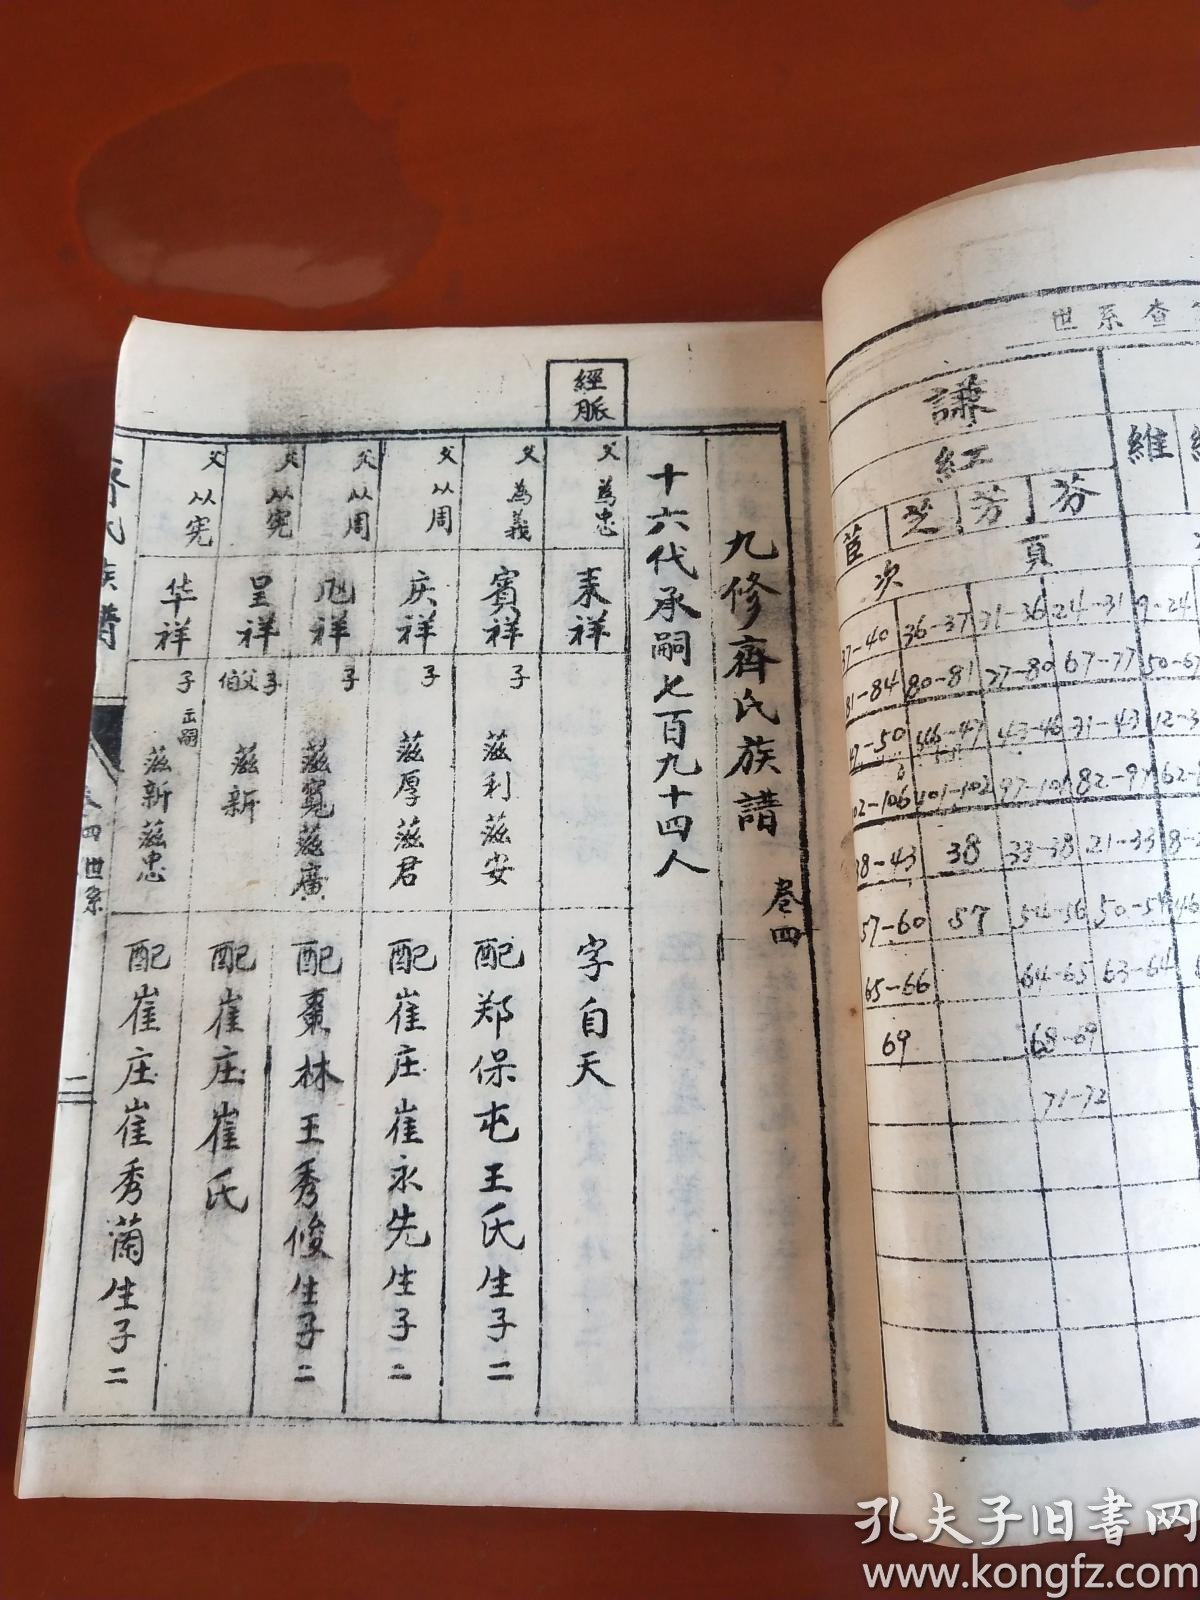 經脈
九修齊氏族譜 卷四
十六代承嗣七百九十四人
父為忠 泰祥 字自天
父為義 賓祥 子 茲利 茲安 配郑保屯王氏生子二
父从周 庆祥 子 茲厚 茲君 配崔庄崔永先生子二
父从周 旭祥 子 茲寬 茲廣 配棗林王秀俊生子二
父从宪 呈祥 子 伯父 茲新 配崔庄崔氏
父从宪 华祥 子 茲新 出嗣 茲忠 配崔庄崔秀蘭生子二
齊氏族譜 卷四 世系 二
世系查
謙
紅 維
芝 芳 芬
次 頁
37-40 36-37 31-36 24-31 9-24
81-84 80-81 77-80 67-77 50-67
47-50 46-47 43-46 31-43 12-3
102-106 101-102 97-101 82-97 62-8
38-43 38 33-38 21-33 8-2
57-60 57 54-56 50-54 46
65-66 64-65 63-64
69 68-69
71-72
孔夫子旧书网
www.kongfz.com